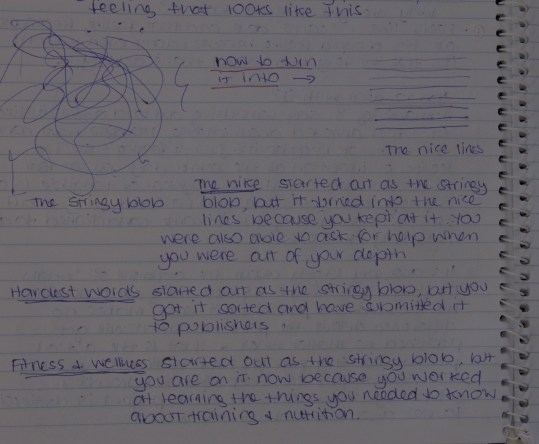 feeling that looks like this
how to turn
it into →
The nice lines
The stringy blob
The nike started out as the stringy
blob, but it turned into the nice
lines because you kept at it you
were also able to ask for help when
you were out of your depth
Hardest words started out as the stringy blob, but you
got it sorted and have submitted it
to publishers.
Fitness & wellness started out as the stringy blob, but
you are on it now because you worked
at learning the things you needed to know
about training & nutrition.